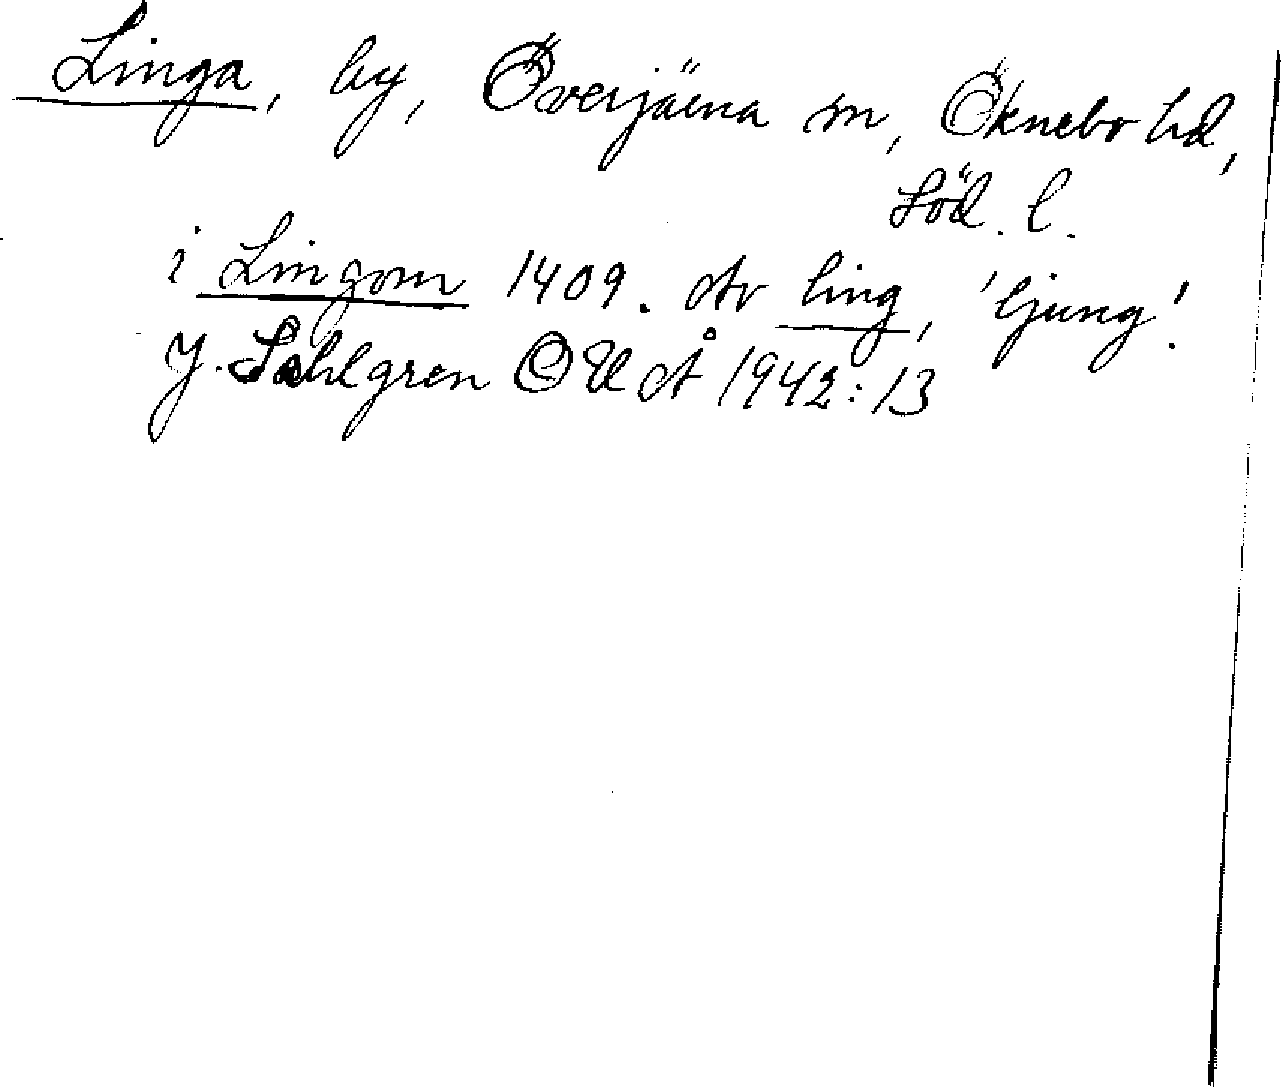 Linga, by, Överjärna sn, Öknebo hd,
Söd. l.
i Lingom 1409. Av ling, 'ljung'.
J. Sahlgren OUÅ 1942:13